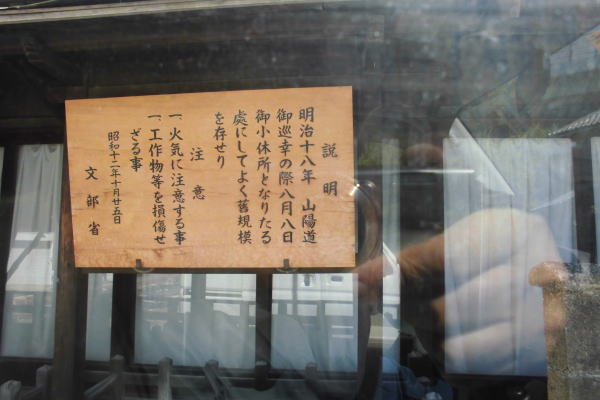 説明
明治十八年 山陽道
御巡幸の際八月八日
御小休所となりたる
處にしてよく舊規模
を存せり
注意
一、火気に注意する事
一、工作物等を損傷せ
ざる事
昭和十二年十月廿五日
文部省